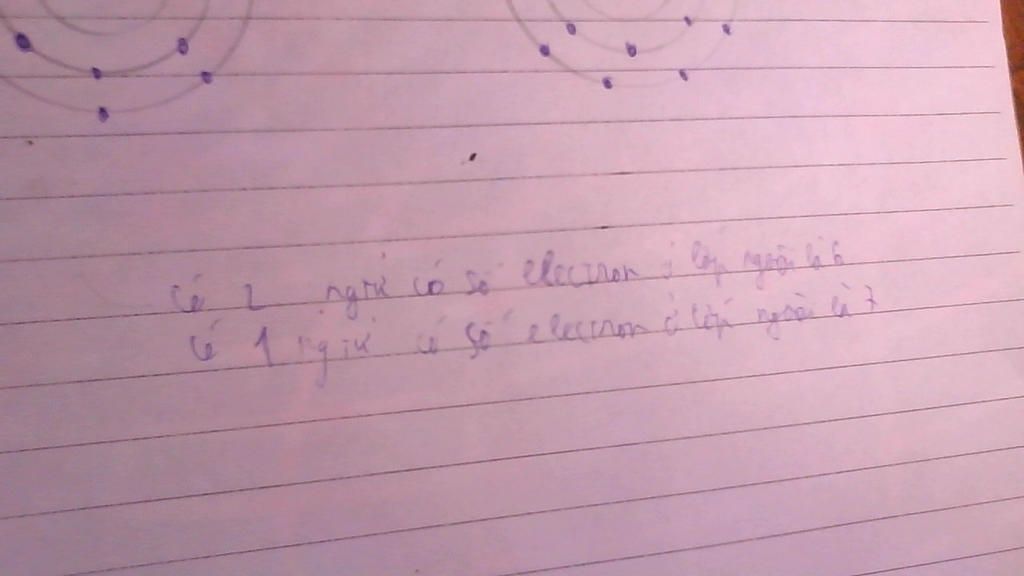 có 2 ngtử có số electron ở lớp ngoài là 6
có 1 ngtử có số electron ở lớp ngoài là 7